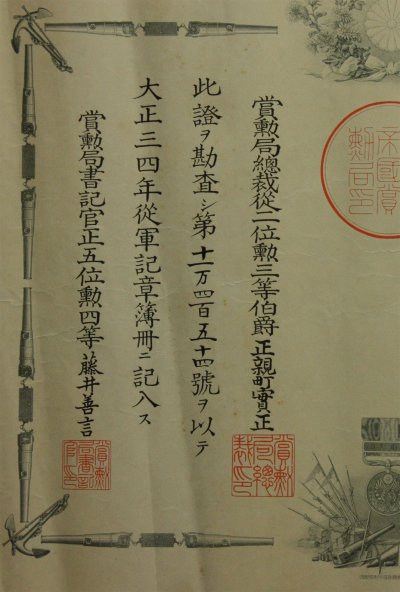 賞勲局總裁從二位勲三等伯爵正親町實正
此證ヲ勘査シ第十一万四百五十四號ヲ以テ
大正三四年從軍記章簿冊ニ記入ス
賞勲局書記官正五位勲四等藤井善言